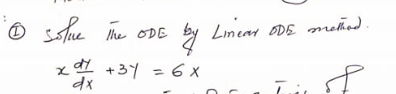 ① Solve the ODE by Linear ODE method.
x dy/dx + 3y = 6x